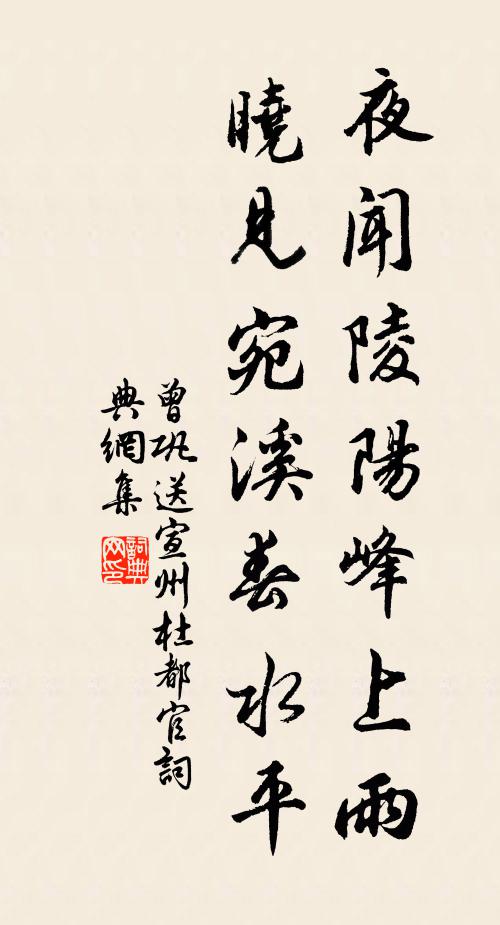 夜聞陵陽峰上雨
曉見宛溪春水平
曾鞏送宣州杜都官詞
典網集
詞典网印